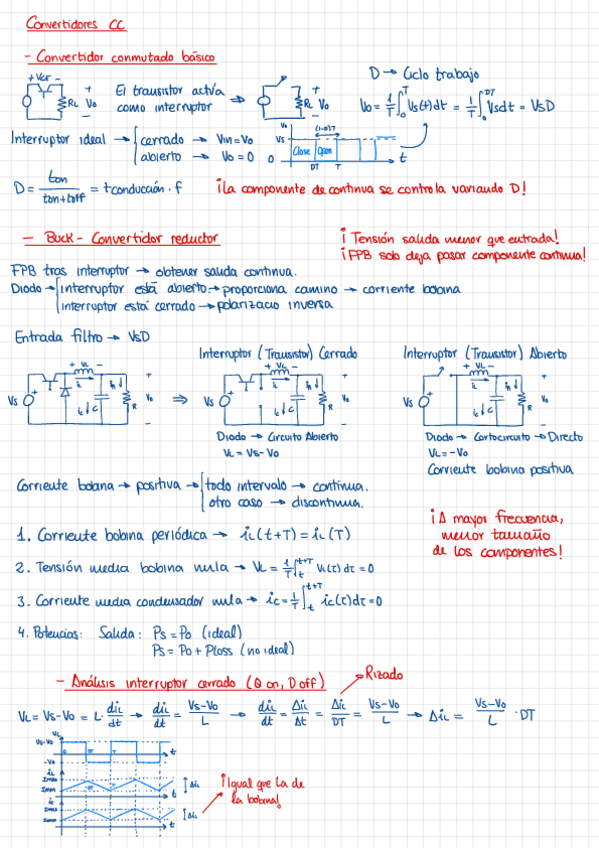 Convertidores CC
- Convertidor conmutado básico
+ VCE -
RL Vo
El transistor actúa
como interruptor
RL Vo
D → Ciclo trabajo
Vo = 1/T ∫₀ᵀ Vs(t)dt = 1/T ∫₀ᴰᵀ Vsdt = VsD
Interruptor ideal → cerrado → Vin=Vo
abierto → Vo=0
Vo
Vs
(1-D)T
Close Open
0
DT T t
D = ton/(ton+toff) = tconducción · f
¡La componente de continua se controla variando D!
- Buck - Convertidor reductor
¡Tensión salida menor que entrada!
¡FPB solo deja pasar componente continua!
FPB tras interruptor → obtener salida continua.
Diodo → interruptor está abierto → proporciona camino → corriente bobina
interruptor está cerrado → polarizacio inversa
Entrada filtro → VsD
Interruptor (Transistor) Cerrado
Interruptor (Transistor) Abierto
+ VL -
Vs iL ic C R Vo
⇒
+ VL -
Vs iL ic C R Vo
+ VL -
Vs iL ic C R Vo
Diodo → Circuito Abierto
VL = Vs-Vo
Diodo → Cortocircuito → Directo
VL = -Vo
Corriente bobina positiva
Corriente bobina → positiva → todo intervalo → continua.
otro caso → discontinua.
¡A mayor frecuencia,
menor tamaño
de los componentes!
1. Corriente bobina periódica → iL(t+T) = iL(T)
2. Tensión media bobina nula → VL = 1/T ∫ₜᵗ⁺ᵀ VL(τ)dτ = 0
3. Corriente media condensador nula → ic = 1/T ∫ₜᵗ⁺ᵀ ic(τ)dτ = 0
4. Potencias: Salida: Ps = Po (ideal)
Ps = Po + Ploss (no ideal)
- Análisis interruptor cerrado (Q on, D off)
Rizado
VL = Vs-Vo = L · diL/dt → diL/dt = (Vs-Vo)/L → diL/dt = ΔiL/Δt = ΔiL/DT = (Vs-Vo)/L → ΔiL = (Vs-Vo)/L · DT
VL
Vs-Vo
DT T t
-Vo
iL
Imax
Imin
ΔiL
t
ic
ΔiL
t
¡Igual que la de
la bobina!